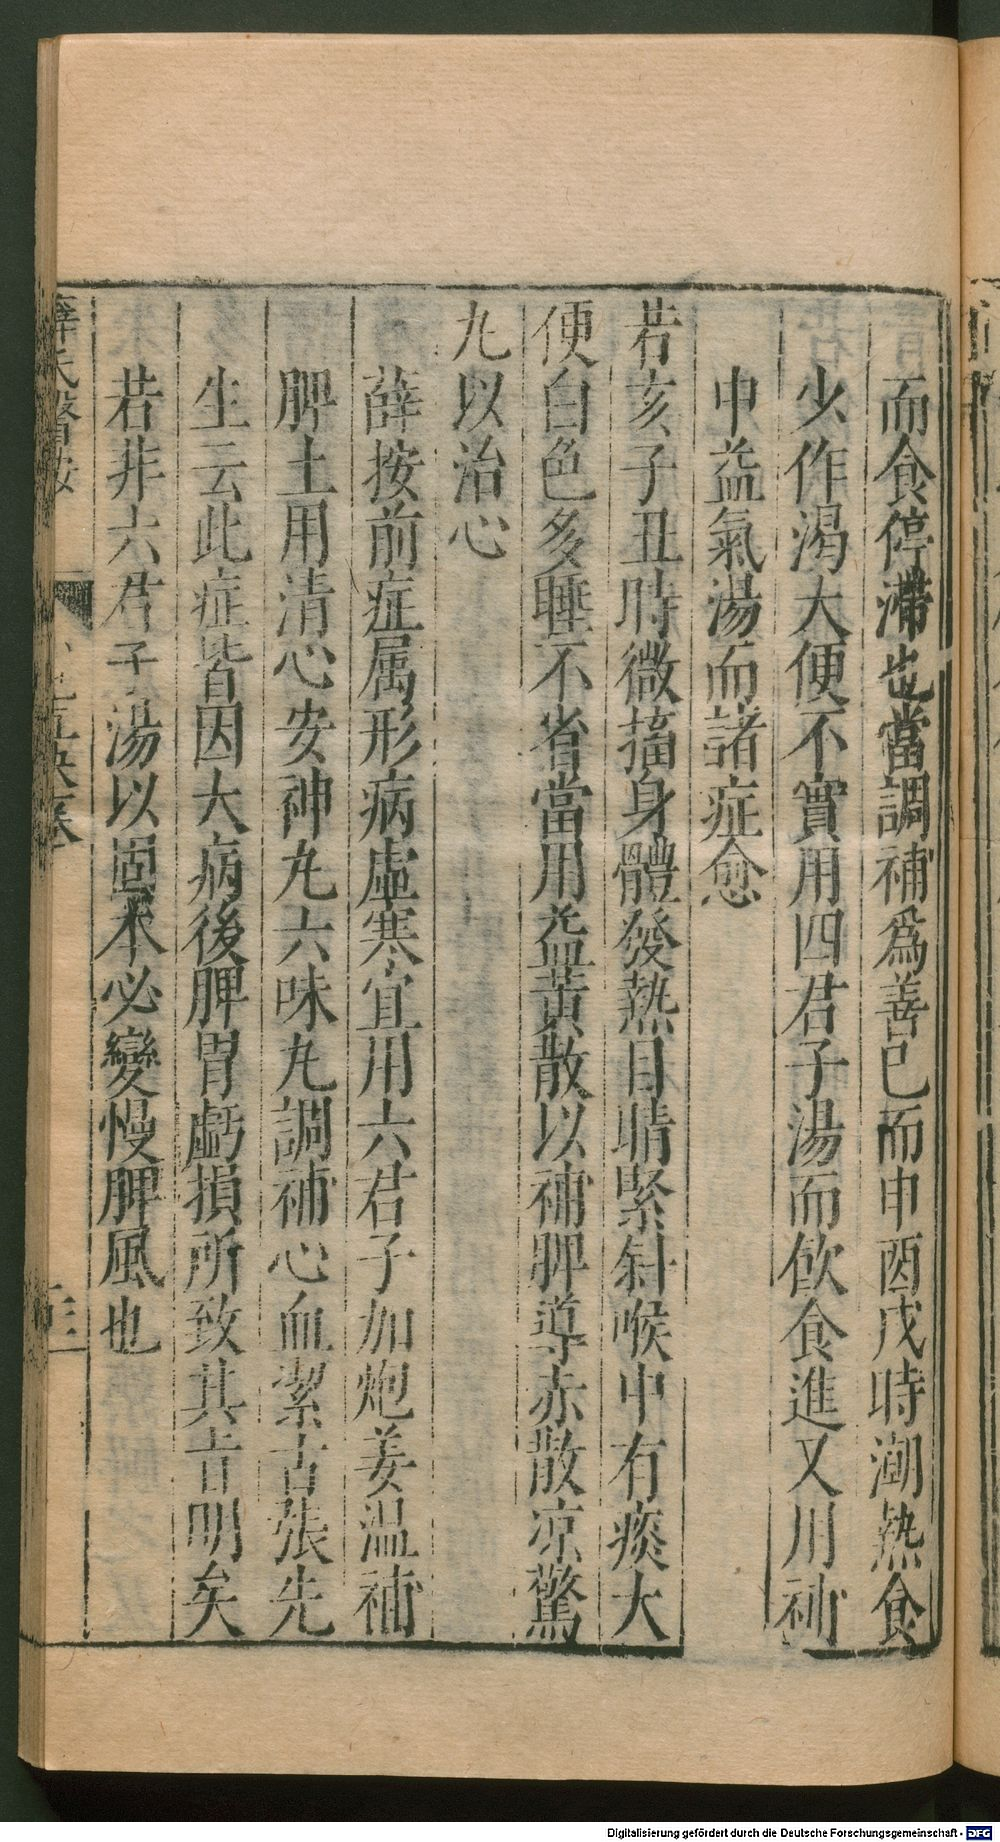 而食停滯也當調補爲善已而申酉戌時潮熱食
少作渴大便不實用四君子湯而飲食進又用補
中益氣湯而諸症愈
若亥子丑時微搐身體發熱目睛緊斜喉中有痰大
便白色多睡不省當用益黃散以補脾導赤散凉驚
九以治心
薛按前症属形病虛寒宜用六君子加炮姜温補
脾土用清心安神九六味九調補心血潔古張先
生云此症皆因大病後脾胃虧損所致其旨明矣
若非六君子湯以固本必變慢脾風也
薛氏醫按
Digitalisierung gefördert durch die Deutsche Forschungsgemeinschaft - DFG